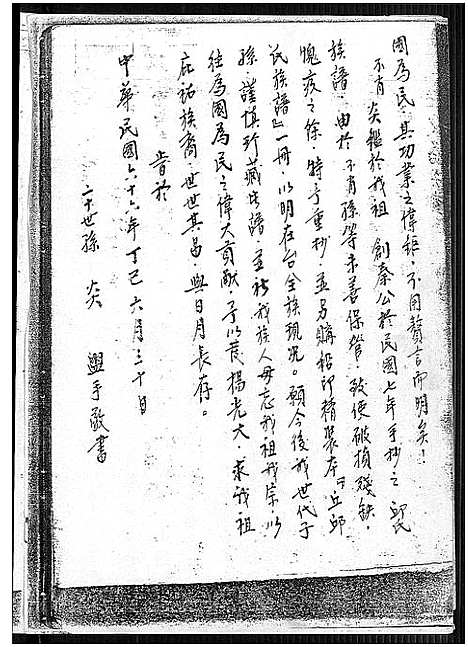 國為民,其功業之偉鉅,不用贅言而明矣!
不肖炎鑑於我祖 創秦公於民國七年手抄之 邱氏
族譜,由於不肖孫等未善保管,致使破損殘缺,
愧疚之餘,特予重抄,並另購稻印精裝本『丘邱
氏族譜』一冊,以明在台全族現況。願今後我世代子
孫,謹慎珍藏此譜,並祈我族人毋忘我祖我宗,以
往為國為民之偉大貢獻,予以茂揚光大,求我祖
庇祐族裔,世世其昌,與日月長存。
旹於
中華民國六十六年丁巳六月三十日
二十世孫 炎 盥手敬書